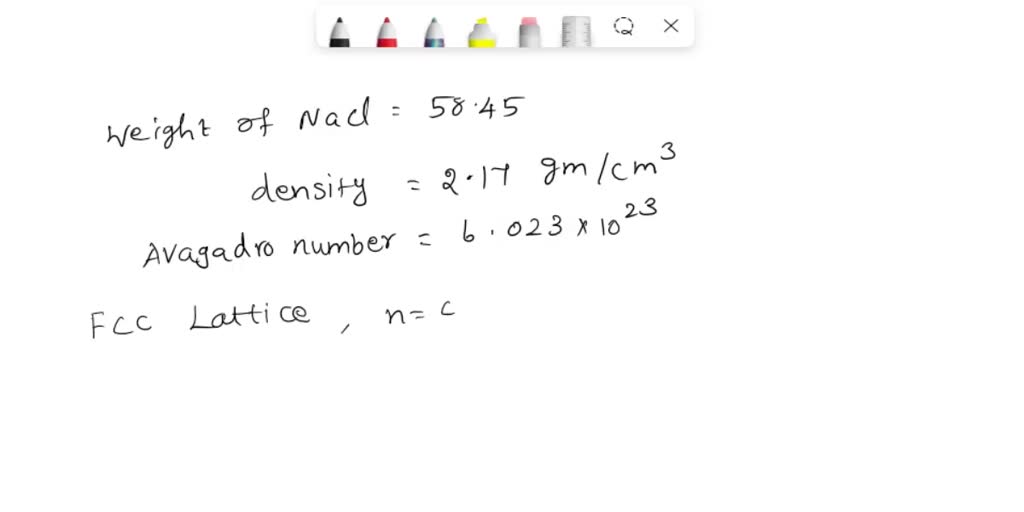 Weight of Nacl = 58.45
density = 2.17 gm/cm³
Avagadro number = 6.023 × 10²³
FCC Lattice, n= c